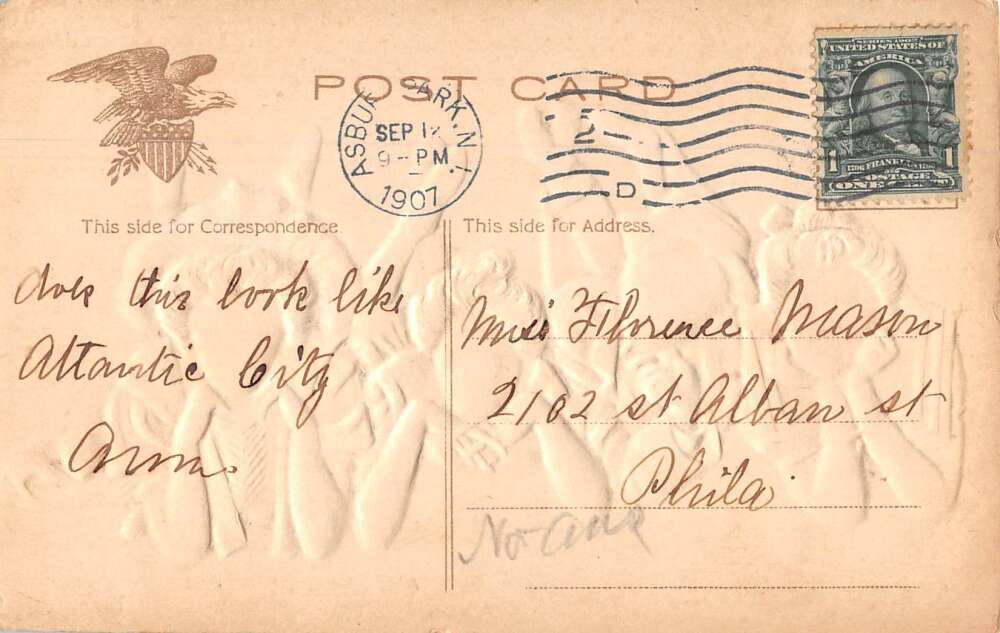 POST CARD
ASBURY PARK, N.J.
SEP 12
9 - PM
1907
D
SERIES 1902
UNITED STATES OF
AMERICA
1 FRANKLIN 1
POSTAGE
ONE
This side for Correspondence
This side for Address.
does this look like
Atlantic City
Ann.
Miss Florence Mason
2102 st Alban st
Phila